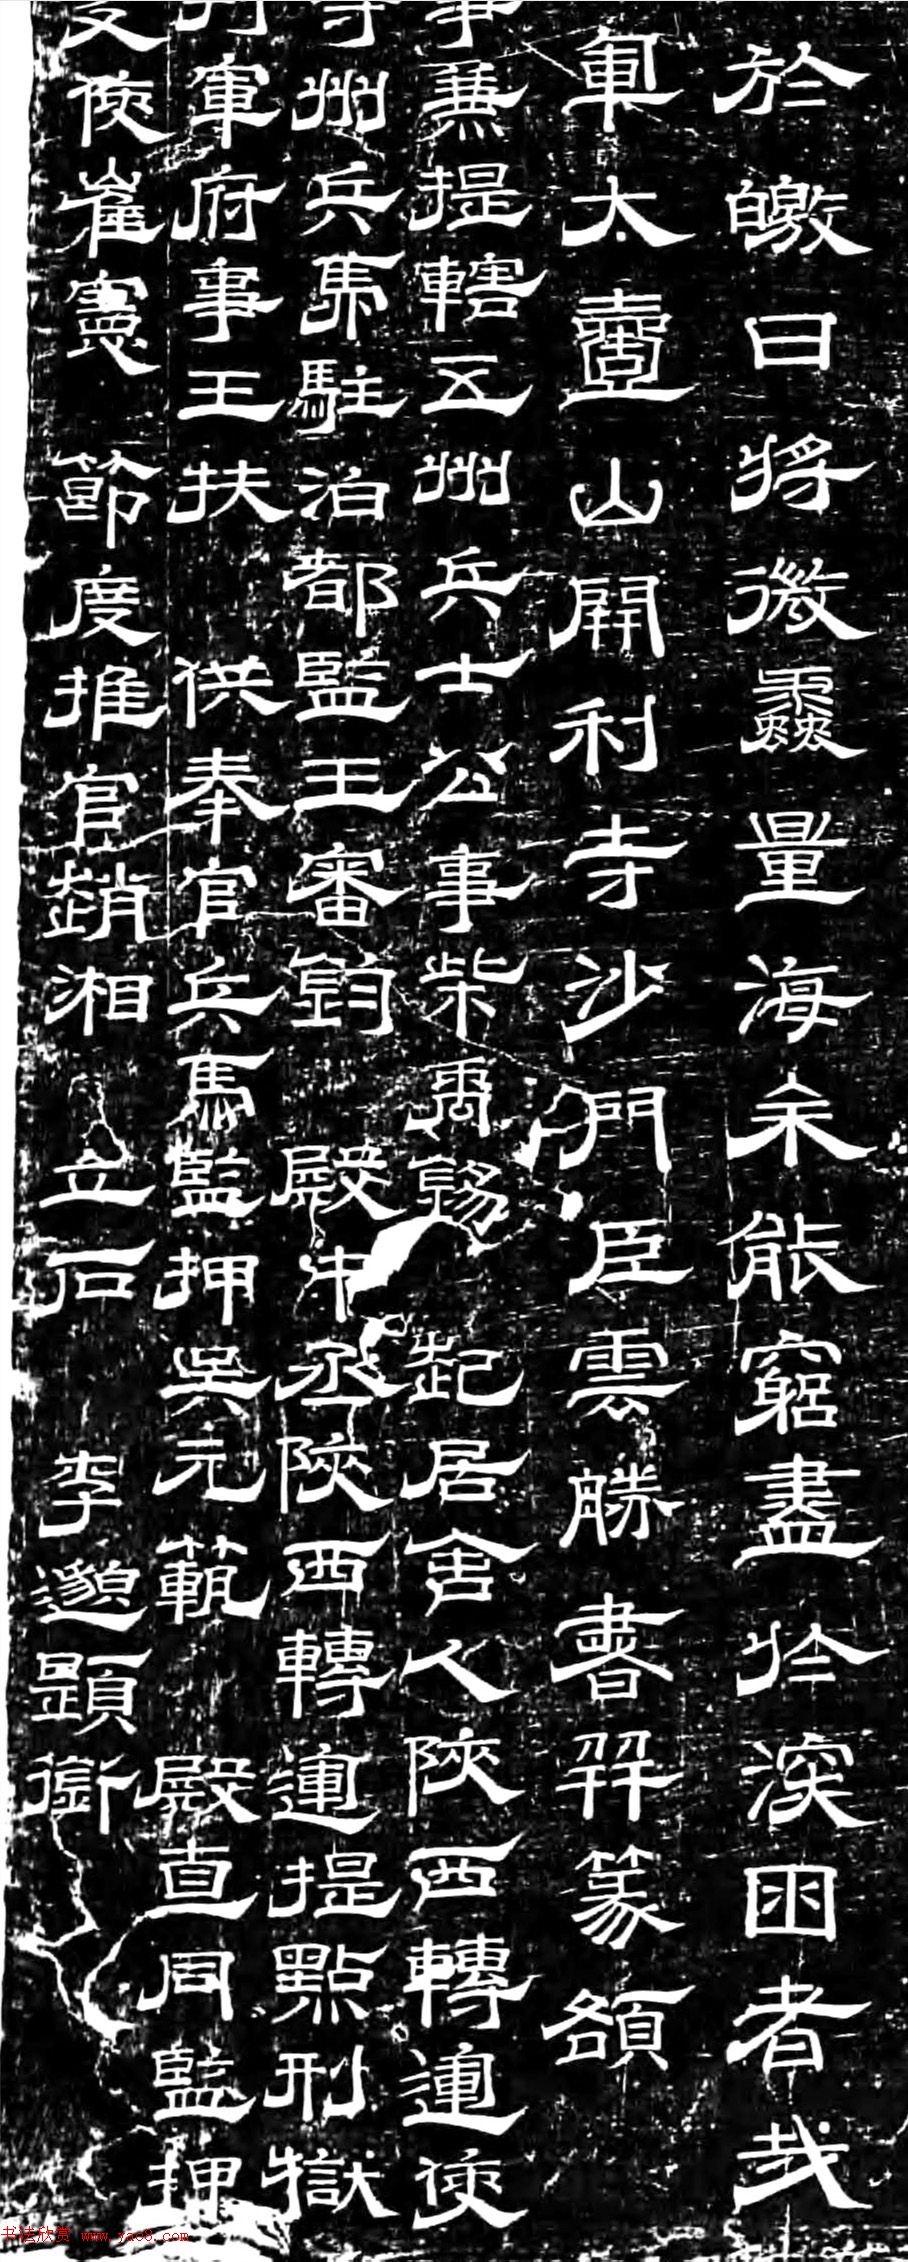 於皦日將微蠡量海余能窮盡於深囦者哉
軍太壹山開利寺沙門臣雲勝書并篆額
事兼提轄五州兵士公事柴禹錫 起居舍人陝西轉運使
等州兵馬駐泊都監王審鈞 殿中丞陝西轉運提點刑獄
判軍府事王扶 供奉官兵馬監押吳元範 殿直同監押
支使崔憲 節度推官趙湘 立石 李邈題銜
书法欣赏 www.yac8.com